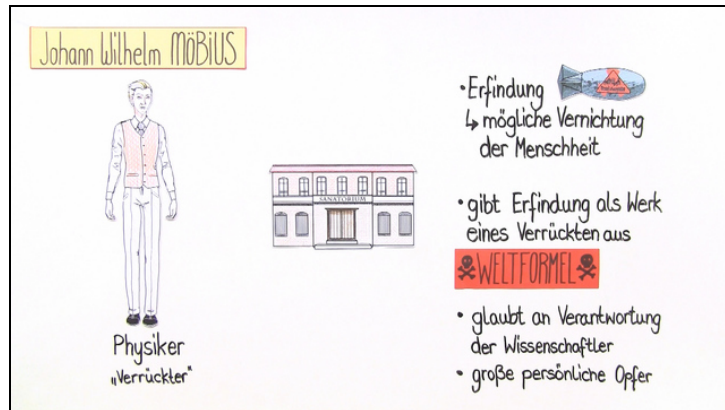 Johann Wilhelm MÖBiUS
Physiker
„Verrückter"
SANATORIUM
• Erfindung
↳ mögliche Vernichtung
der Menschheit
• gibt Erfindung als Werk
eines Verrückten aus
WELTFORMEL
• glaubt an Verantwortung
der Wissenschaftler
• große persönliche Opfer